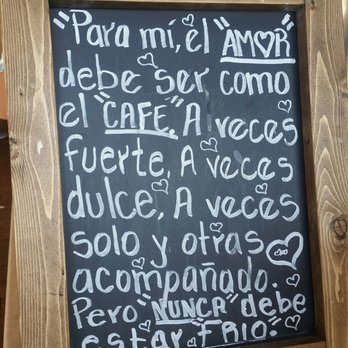 "Para mi, el "AMOR"
debe ser como
el "CAFE". A veces
fuerte, A veces
dulce, A veces
solo y otras
acompañado.
Pero "NUNCA" debe
estar "FRIO"